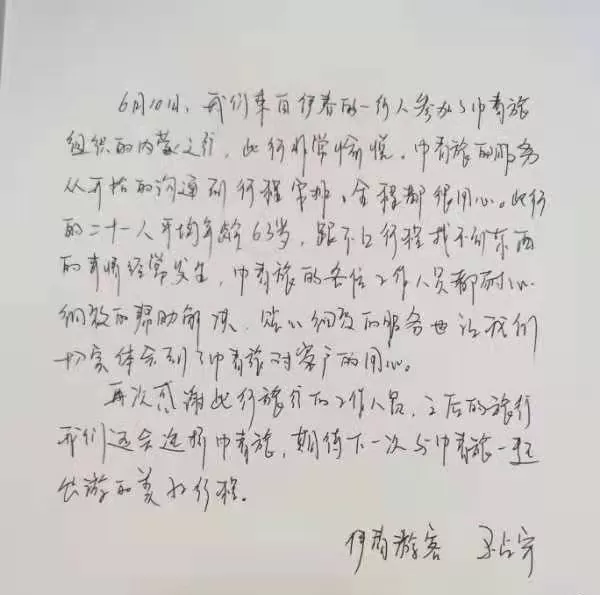 6月10日，我们来自伊春的一行人参加了中青旅
组织的内蒙之行，此行非常愉悦。中青旅的服务
从开始的沟通到行程安排，全程都很用心。此行
的二十一人平均年龄63岁，跟不上行程找不到东西
的事情经常发生，中青旅的各位工作人员都耐心
细致的帮助解决，贴心细致的服务也让我们
切实体会到了中青旅对客户的用心。
再次感谢此行旅行的工作人员，之后的旅行
我们还会选择中青旅，期待下一次与中青旅一起
出游的美好行程。
伊春游客 占宇